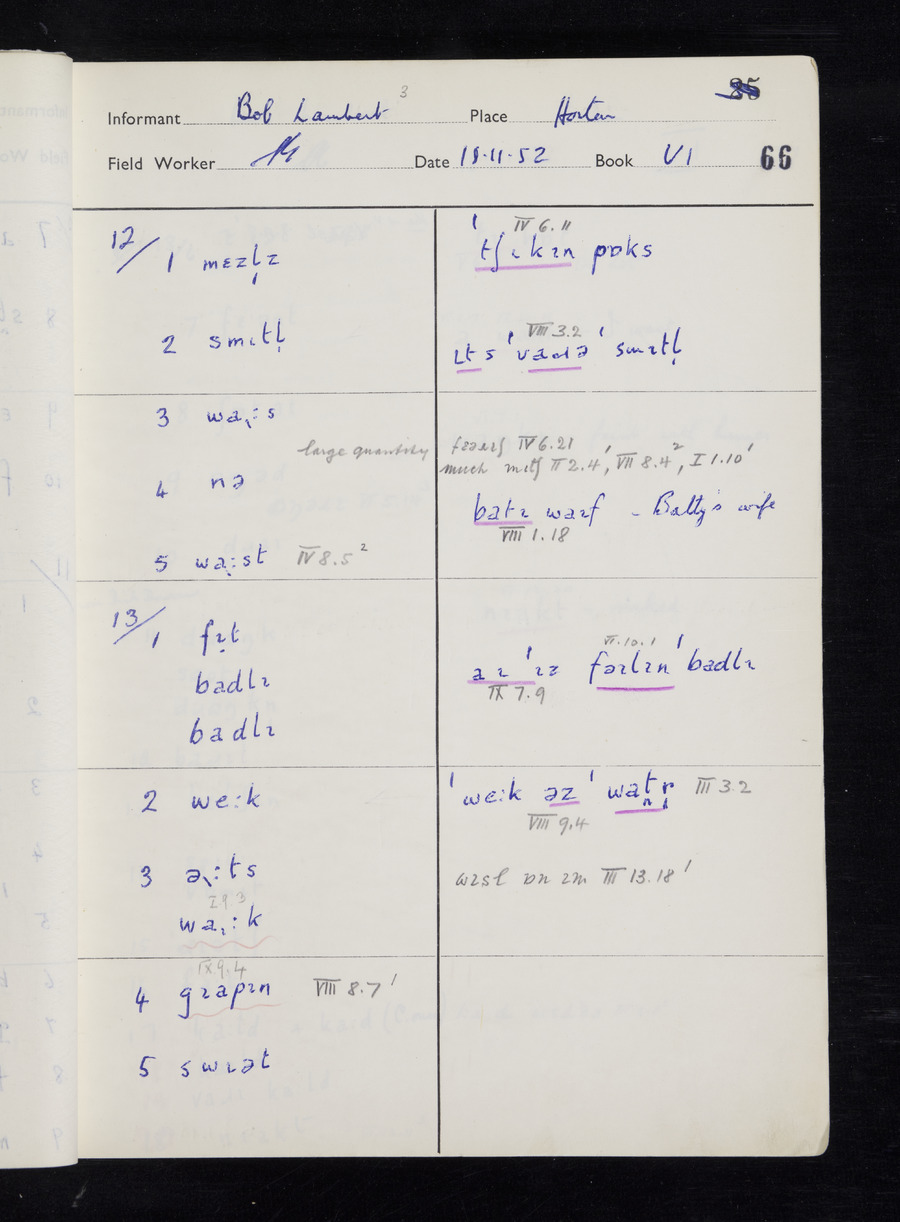 3
Informant Bob Lambert Place Horton
Field Worker Date 18.11.52 Book VI 66
12/ 1 mɛzl̩z
ˈtʃɪkɪn pɒks
IV 6.11
2 smɪtl̩
ɪts ˈvaɹə ˈsmɪtl̩
VIII 3.2
3
large quantity
IV 6.21
much mɪtʃ II 2.4', VII 8.4², I 1.10'
4 nə
batɪ waɪf - Batty's wife
VIII 1.18
5 IV 8.5²
13/ 1 fɪt
badlɪ
badlɪ
VI.10.1
ˈɪz fəɪlɪn ˈbadlɪ
IX 7.9
2 we:k
ˈwe:k əz ˈ III 3.2
VIII 9.4
3
I 9 3
wɪsl ɒn ɪm III 13.18'
IX 9.4
4 gɹapɪn VIII 8.7'
5 swɪət